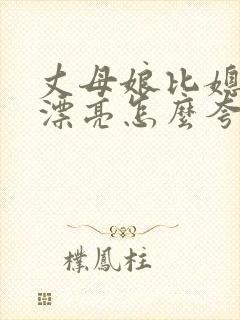 丈母娘比媳
漂亮怎麼夸
檏鳳柱